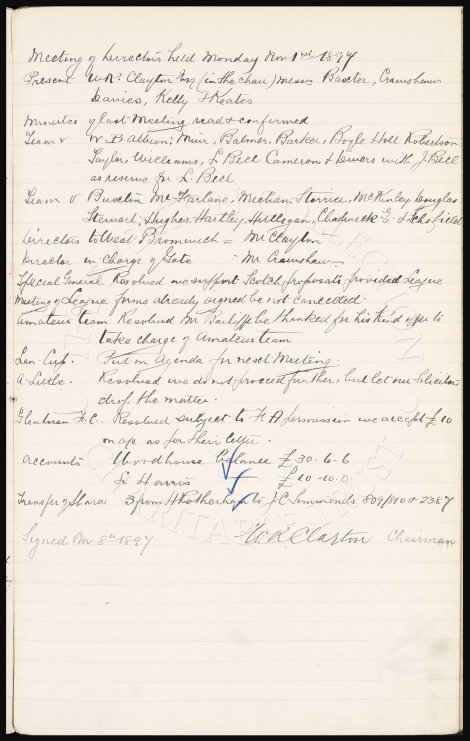 Meeting of Directors held Monday Nov 1st 1897
Present Wm R. Clayton Esq (in the chair) Messrs Baxter, Crawshaw
Davies, Kelly & Keates
Minutes of last Meeting read & confirmed
Team v W. B. Albion; Muir, Balmer, Barker, Boyle Holt Robertson
Taylor, Williams, L Bell Cameron & Divers with J Bell
as reserve for L. Bell
Team v Buxton McFarlane, Meehan, Storrier, McKinley, Douglas
Stewart; Hughes, Hartley, Hilligan, Chadwick E. &
Directors to West Bromwich = Mr Clayton
Director in Charge of Gate = Mr Crawshaw
Special General Resolved we support Scotch proposals provided League
Meeting of League forms already signed be not cancelled.
Amateur team Resolved Mr Barliffe be thanked for his kind offer to
take charge of Amateur team
Lan. Cup. Put on Agenda for next Meeting.
A. Little. Resolved we do not proceed further, but let our Solicitors
drop the matter.
Glentoran F.C. Resolved subject to F.A permission we accept £10
on a/c as per their letter.
Accounts Woodhouse balance £30-6-6
L Harris + £10-10-0
Transfer of Shares 3 from H Rotherham to J C Simmonds 809/810 & 2387
Signed Nov 8th 1897 W. R. Clayton Chairman